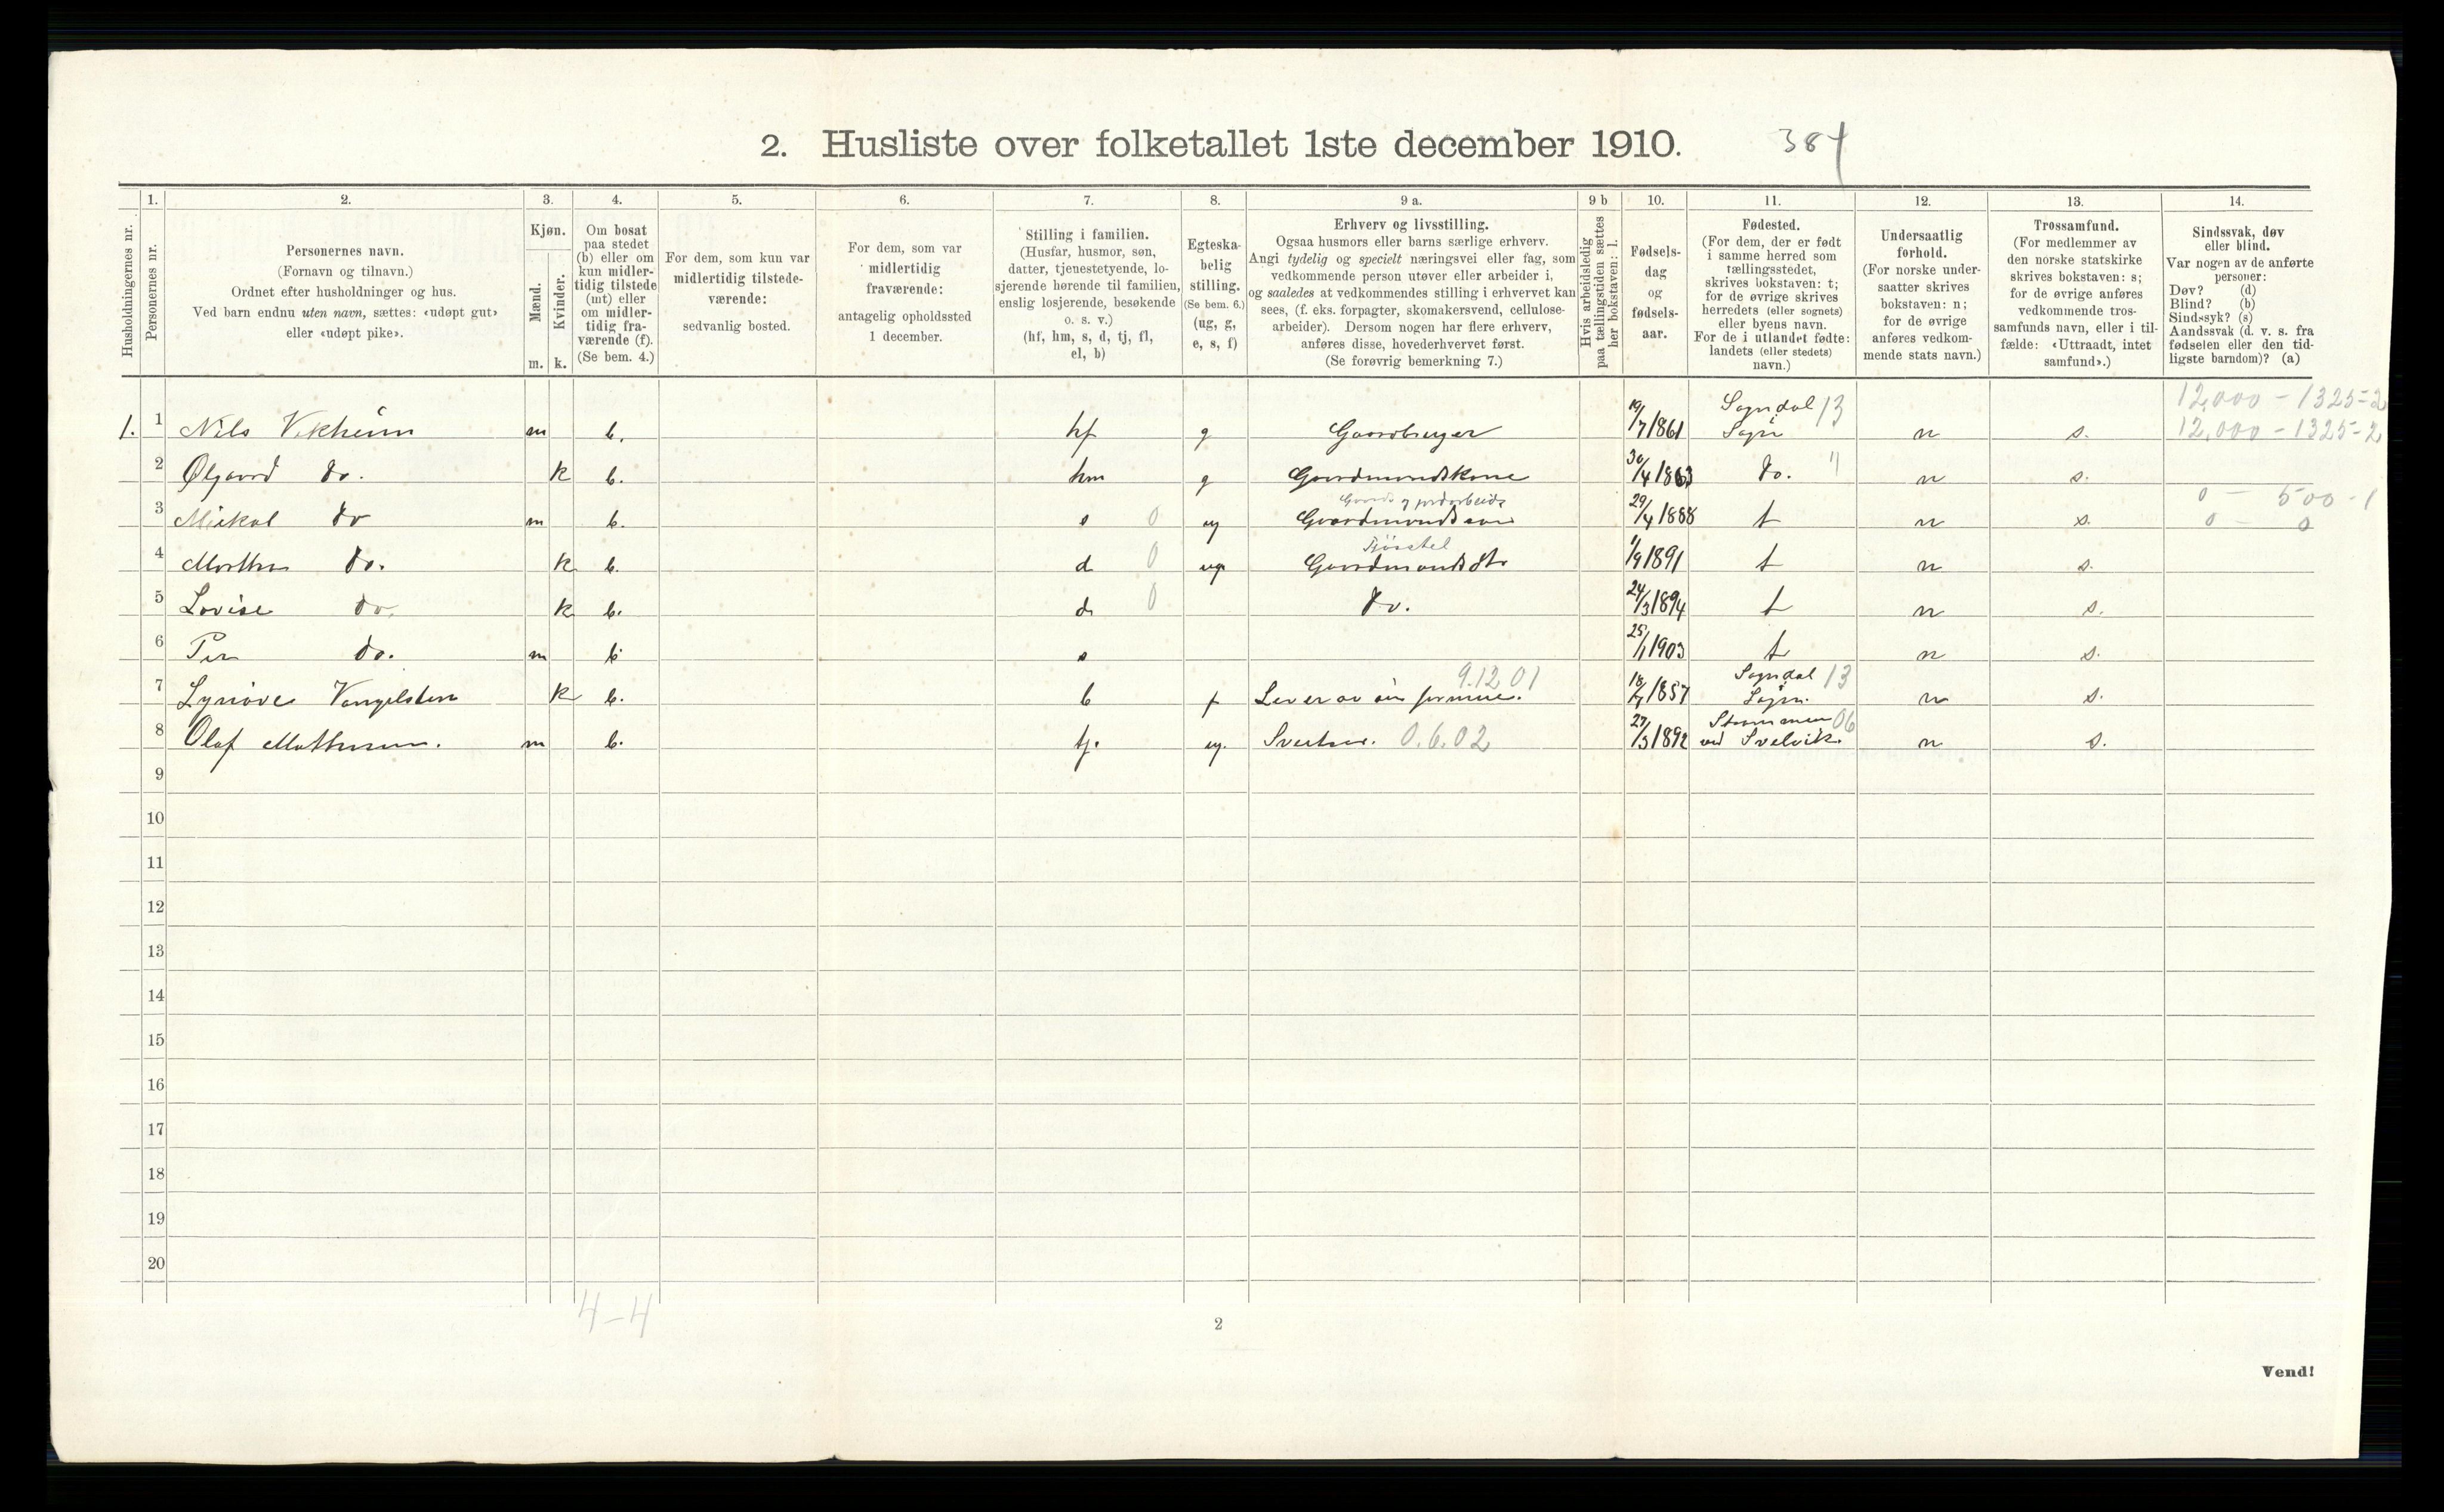 2. Husliste over folketallet 1ste december 1910. 384
Husholdningernes nr.
1. Personernes nr.
2. Personernes navn.
(Fornavn og tilnavn.)
Ordnet efter husholdninger og hus.
Ved barn endnu uten navn, sættes: «udøpt gut»
eller «udøpt pike».
3. Kjøn.
Mænd. m.
Kvinder. k.
4. Om bosat
paa stedet
(b) eller om
kun midler-
tidig tilstede
(mt) eller
om midler-
tidig fra-
værende (f).
(Se bem. 4.)
5. For dem, som kun var
midlertidig tilstede-
værende:
sedvanlig bosted.
6. For dem, som var
midlertidig
fraværende:
antagelig opholdssted
1 december.
7. Stilling i familien.
(Husfar, husmor, søn,
datter, tjenestetyende, lo-
sjerende hørende til familien,
enslig losjerende, besøkende
o. s. v.)
(hf, hm, s, d, tj, fl,
el, b)
8. Egteska-
belig
stilling.
(Se bem. 6.)
(ug, g,
e, s, f)
9 a. Erhverv og livsstilling.
Ogsaa husmors eller barns særlige erhverv.
Angi tydelig og specielt næringsvei eller fag, som
vedkommende person utøver eller arbeider i,
og saaledes at vedkommendes stilling i erhvervet kan
sees, (f. eks. forpagter, skomakersvend, cellulose-
arbeider). Dersom nogen har flere erhverv,
anføres disse, hovederhvervet først.
(Se forøvrig bemerkning 7.)
9 b Hvis arbeidsledig
paa tællingstiden sættes
her bokstaven: l.
10. Fødsels-
dag
og
fødsels-
aar.
11. Fødested.
(For dem, der er født
i samme herred som
tællingsstedet,
skrives bokstaven: t;
for de øvrige skrives
herredets (eller sognets)
eller byens navn.
For de i utlandet fødte:
landets (eller stedets)
navn.)
12. Undersaatlig
forhold.
(For norske under-
saatter skrives
bokstaven: n;
for de øvrige
anføres vedkom-
mende stats navn.)
13. Trossamfund.
(For medlemmer av
den norske statskirke
skrives bokstaven: s;
for de øvrige anføres
vedkommende tros-
samfunds navn, eller i til-
fælde: «Uttraadt, intet
samfund».)
14. Sindssvak, døv
eller blind.
Var nogen av de anførte
personer:
Døv? (d)
Blind? (b)
Sindssyk? (s)
Aandssvak (d. v. s. fra
fødselen eller den tid-
ligste barndom)? (a)
Sogndal 13 12,000 - 1325 = 2
1. 1 Nils Vikheim m b. hf g Gaardbruger 19/7 1861 Sogn n s. 12,000 - 1325 - 2
2 Ølgaard do. k b. hm g Gaardmandskone 30/4 1863 do. " n s.
Gaards og jordarbeide 0 - 500 - 1
3 Mikal do m b. s 0 ug Gaardmandssøn 29/4 1888 t n s. 0 - 0
Fjøsstel
4 Martha do. k b. d 0 ug Gaardmandsdtr 1/9 1891 t n s.
5 Lovise do. k b. d 0 do. 24/3 1894 t n s.
6 Per do. m b s 25/1 1903 t n s.
9.12 01 Sogndal 13
7 Synøve Vangelsten k b. b f Lever av sin formue. 18/4 1857 Sogn. n s.
Strømmen 06
8 Olaf Mathisen. m b. tj. ug. 0.6.02 27/3 1892 ved Svelvik. n s.
9
10
11
12
13
14
15
16
17
18
19
20
4-4
2
Vend!